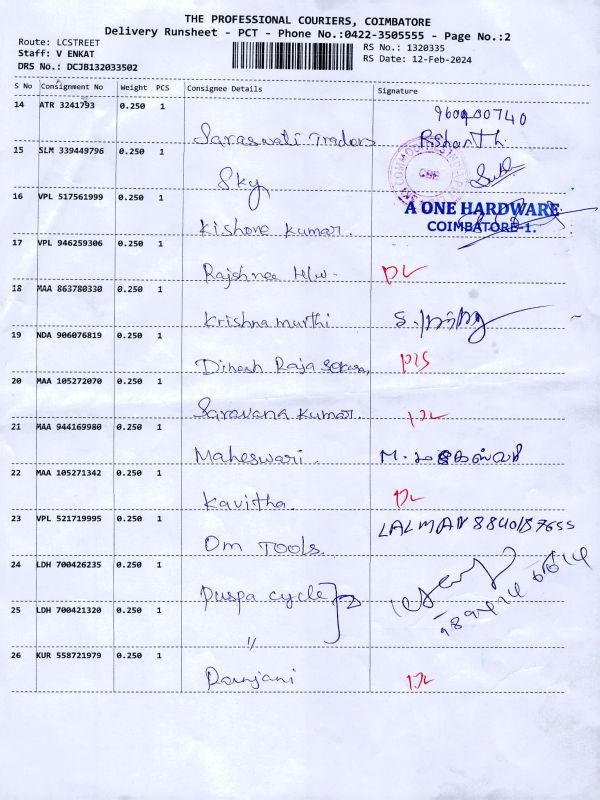 THE PROFESSIONAL COURIERS, COIMBATORE
Delivery Runsheet - PCT - Phone No.:0422-3505555 - Page No.:2
Route: LCSTREET
Staff: V ENKAT
DRS No.: DCJB132033502
RS No.: 1320335
RS Date: 12-Feb-2024
S No Consignment No Weight PCS Consignee Details Signature
14 ATR 3241793 0.250 1 Saraswati Traders
15 SLM 339449796 0.250 1 Sky
16 VPL 517561999 0.250 1 Kishore Kumar. A ONE HARDWARE
COIMBATORE-1.
17 VPL 946259306 0.250 1 Rajshree H/w- DL
18 MAA 863780330 0.250 1 Krishna murthi
19 NDA 906076819 0.250 1 Dinesh Raja
20 MAA 105272070 0.250 1 Saravana Kumar. DL
21 MAA 944169980 0.250 1 Maheswari. M. மகேஸ்வரி
22 MAA 105271342 0.250 1 Kavitha. DL
23 VPL 521719995 0.250 1 Om TOOLS. LALMAN 8840187655
24 LDH 700426235 0.250 1 Puspa cycle
25 LDH 700421320 0.250 1 "
26 KUR 558721979 0.250 1 DL